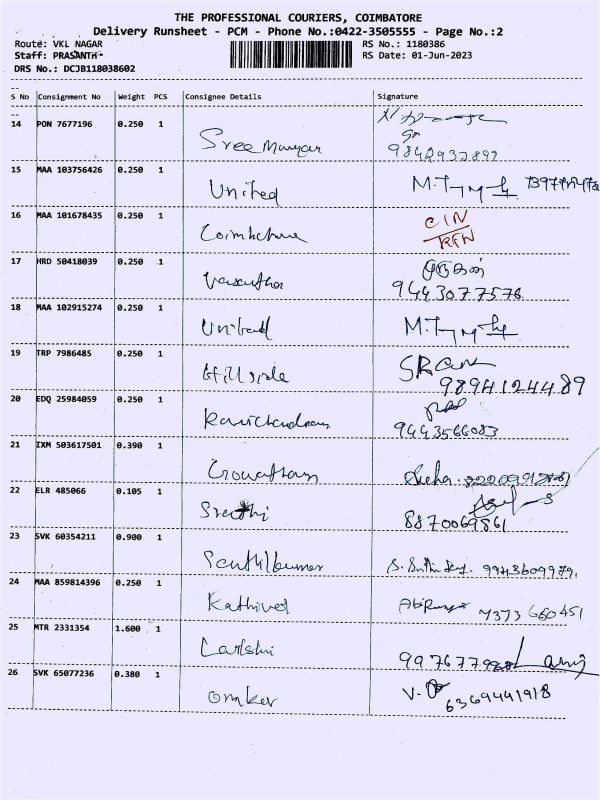 THE PROFESSIONAL COURIERS, COIMBATORE
Delivery Runsheet - PCM - Phone No.:0422-3505555 - Page No.:2
Route: VKL NAGAR RS No.: 1180386
Staff: PRASANTH RS Date: 01-Jun-2023
DRS No.: DCJB118038602
S No Consignment No Weight PCS Consignee Details Signature
14 PON 7677196 0.250 1 Sree
15 MAA 103756426 0.250 1 United
16 MAA 101678435 0.250 1 Coimbatore CIN
17 HRD 50418039 0.250 1 Vasantha முருகன்
9443077576
18 MAA 102915274 0.250 1 United
19 TRP 7986485 0.250 1 Hillside
9894124489
20 EDQ 25984059 0.250 1 Ravichandran
9443566083
21 IXM 503617501 0.390 1 Gowatham
22 ELR 485066 0.105 1
8870069861
23 SVK 60354211 0.900 1 Senthilkumar 9943609979
24 MAA 859814396 0.250 1 Kathirvel 7373660451
25 MTR 2331354 1.600 1
26 SVK 65077236 0.380 1 omker 6369441918